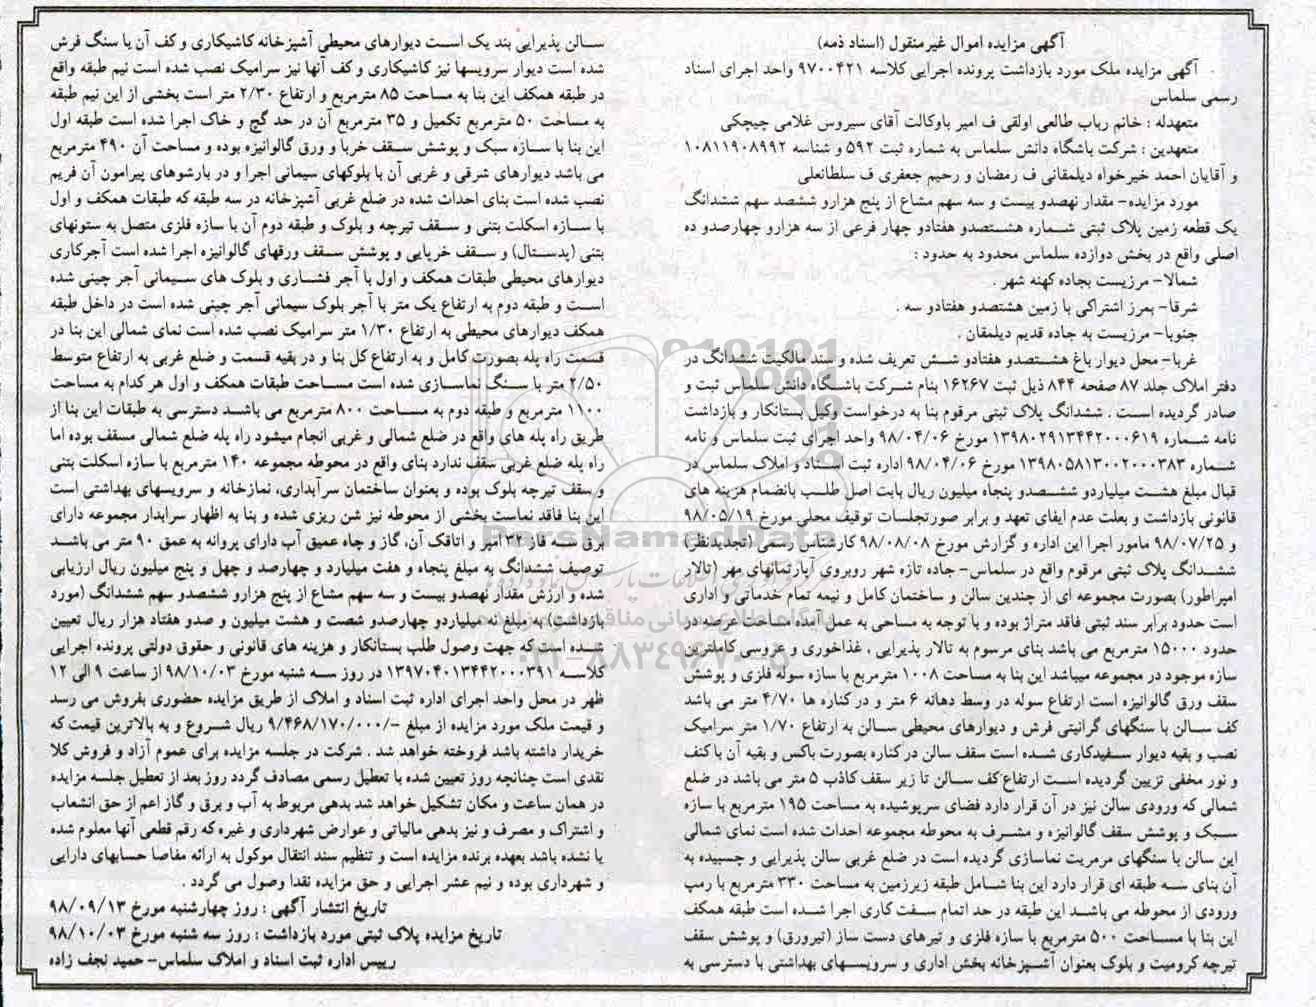 آگهی مزایده اموال غیرمنقول (اسناد ذمه)
آگهی مزایده ملک مورد بازداشت پرونده اجرایی کلاسه ۹۷۰۰۴۲۱ واحد اجرای اسناد
رسمی سلماس
متعهدله : خانم رباب طالعی اولقی ف امیر باوکالت آقای سیروس غلامی چیچکی
متعهدین : شرکت باشگاه دانش سلماس به شماره ثبت ۵۹۲ و شناسه ۱۰۸۱۱۹۰۸۹۹۲
و آقایان احمد خیرخواه دیلمقانی ف رمضان و رحیم جعفری ف سلطانعلی
مورد مزایده- مقدار نهصدو بیست و سه سهم مشاع از پنج هزارو ششصد سهم ششدانگ
یک قطعه زمین پلاک ثبتی شماره هشتصدو هفتادو چهار فرعی از سه هزارو چهارصدو ده
اصلی واقع در بخش دوازده سلماس محدود به حدود :
شمالا- مرزیست بجاده کهنه شهر .
شرقا- بمرز اشتراکی با زمین هشتصدو هفتادو سه .
جنوبا- مرزیست به جاده قدیم دیلمقان .
غربا- محل دیوار باغ هشتصدو هفتادو شش تعریف شده و سند مالکیت ششدانگ در
دفتر املاک جلد ۸۷ صفحه ۸۴۴ ذیل ثبت ۱۶۲۶۷ بنام شرکت باشگاه دانش سلماس ثبت و
صادر گردیده است . ششدانگ پلاک ثبتی مرقوم بنا به درخواست وکیل بستانکار و بازداشت
نامه شماره ۱۳۹۸۰۲۹۱۳۴۴۲۰۰۰۶۱۹ مورخ ۹۸/۰۴/۰۶ واحد اجرای ثبت سلماس و نامه
شماره ۱۳۹۸۰۵۸۱۳۰۰۲۰۰۰۳۸۳ مورخ ۹۸/۰۴/۰۶ اداره ثبت اسناد و املاک سلماس در
قبال مبلغ هشت میلیاردو ششصدو پنجاه میلیون ریال بابت اصل طلب بانضمام هزینه های
قانونی بازداشت و بعلت عدم ایفای تعهد و برابر صورتجلسات توقیف محلی مورخ ۹۸/۰۵/۱۹
و ۹۸/۰۷/۲۵ مامور اجرا این اداره و گزارش مورخ ۹۸/۰۸/۰۸ کارشناس رسمی (تجدیدنظر)
ششدانگ پلاک ثبتی مرقوم واقع در سلماس- جاده تازه شهر روبروی آپارتمانهای مهر (تالار
امپراطور) بصورت مجموعه ای از چندین سالن و ساختمان کامل و نیمه تمام خدماتی و اداری
است حدود برابر سند ثبتی فاقد متراژ بوده و با توجه به مساحی به عمل آمده مساحت عرصه در
حدود ۱۵۰۰۰ مترمربع می باشد بنای مرسوم به تالار پذیرایی ، غذاخوری و عروسی کاملترین
سازه موجود در مجموعه میباشد این بنا به مساحت ۱۰۰۸ مترمربع با سازه سوله فلزی و پوشش
سقف ورق گالوانیزه است ارتفاع سوله در وسط دهانه ۶ متر و در کناره ها ۴/۷۰ متر می باشد
کف سالن با سنگهای گرانیتی فرش و دیوارهای محیطی سالن به ارتفاع ۱/۷۰ متر سرامیک
نصب و بقیه دیوار سفیدکاری شده است سقف سالن در کناره بصورت باکس و بقیه آن با کتف
و نور مخفی تزیین گردیده است ارتفاع کف سالن تا زیر سقف کاذب ۵ متر می باشد در ضلع
شمالی که ورودی سالن نیز در آن قرار دارد فضای سرپوشیده به مساحت ۱۹۵ مترمربع با سازه
سبک و پوشش سقف گالوانیزه و مشرف به محوطه مجموعه احداث شده است نمای شمالی
این سالن با سنگهای مرمریت نماسازی گردیده است در ضلع غربی سالن پذیرایی و چسبیده به
آن بنای سه طبقه ای قرار دارد این بنا شامل طبقه زیرزمین به مساحت ۳۳۰ مترمربع با رمپ
ورودی از محوطه می باشد این طبقه در حد اتمام سفت کاری اجرا شده است طبقه همکف
این بنا با مساحت ۵۰۰ مترمربع با سازه فلزی و تیرهای دست ساز (تیرورق) و پوشش سقف
تیرچه کرومیت و بلوک بعنوان آشپزخانه بخش اداری و سرویسهای بهداشتی با دسترسی به
سالن پذیرایی بند یک است دیوارهای محیطی آشپزخانه کاشیکاری و کف آن با سنگ فرش
شده است دیوار سرویسها نیز کاشیکاری و کف آنها نیز سرامیک نصب شده است نیم طبقه واقع
در طبقه همکف این بنا به مساحت ۸۵ مترمربع و ارتفاع ۲/۳۰ متر است بخشی از این نیم طبقه
به مساحت ۵۰ مترمربع تکمیل و ۳۵ مترمربع آن در حد گچ و خاک اجرا شده است طبقه اول
این بنا با سازه سبک و پوشش سقف خرپا و ورق گالوانیزه بوده و مساحت آن ۴۹۰ مترمربع
می باشد دیوارهای شرقی و غربی آن با بلوکهای سیمانی اجرا و در بارشوهای پیرامون آن فریم
نصب شده است بنای احداث شده در ضلع غربی آشپزخانه در سه طبقه که طبقات همکف و اول
با سازه اسکلت بتنی و سقف تیرچه و بلوک و طبقه دوم آن با سازه فلزی متصل به ستونهای
بتنی (پدستال) و سقف خرپایی و پوشش سقف ورقهای گالوانیزه اجرا شده است آجرکاری
دیوارهای محیطی طبقات همکف و اول با آجر فشاری و بلوک های سیمانی آجر چینی شده
است و طبقه دوم به ارتفاع یک متر با آجر بلوک سیمانی آجر چینی شده است در داخل طبقه
همکف دیوارهای محیطی به ارتفاع ۱/۳۰ متر سرامیک نصب شده است نمای شمالی این بنا در
قسمت راه پله بصورت کامل و به ارتفاع کل بنا و در بقیه قسمت و ضلع غربی به ارتفاع متوسط
۲/۵۰ متر با سنگ نماسازی شده است مساحت طبقات همکف و اول هر کدام به مساحت
۱۱۰۰ مترمربع و طبقه دوم به مساحت ۸۰۰ مترمربع می باشد دسترسی به طبقات این بنا از
طریق راه پله های واقع در ضلع شمالی و غربی انجام میشود راه پله ضلع شمالی مسقف بوده اما
راه پله ضلع غربی سقف ندارد بنای واقع در محوطه مجموعه ۱۴۰ مترمربع با سازه اسکلت بتنی
و سقف تیرچه بلوک بوده و بعنوان ساختمان سرآبداری، نمازخانه و سرویسهای بهداشتی است
این بنا فاقد نماست بخشی از محوطه نیز شن ریزی شده و بنا به اظهار سرایدار مجموعه دارای
برق سه فاز ۳۲ آمپر و اتاقک آن، گاز و چاه عمیق آب دارای پروانه به عمق ۹۰ متر می باشد
توصیف ششدانگ به مبلغ پنجاه و هفت میلیارد و چهارصد و چهل و پنج میلیون ریال ارزیابی
شده و ارزش مقدار نهصدو بیست و سه سهم مشاع از پنج هزارو ششصدو سهم ششدانگ (مورد
بازداشت) به مبلغ نه میلیاردو چهارصدو شصت و هشت میلیون و صدو هفتاد هزار ریال تعیین
شده است که جهت وصول طلب بستانکار و هزینه های قانونی و حقوق دولتی پرونده اجرایی
کلاسه ۱۳۹۷۰۴۰۱۳۴۴۲۰۰۰۳۹۱ در روز سه شنبه مورخ ۹۸/۱۰/۰۳ از ساعت ۹ الی ۱۲
ظهر در محل واحد اجرای اداره ثبت اسناد و املاک از طریق مزایده حضوری بفروش می رسد
و قیمت ملک مورد مزایده از مبلغ -/۹/۴۶۸/۱۷۰/۰۰۰ ریال شروع و به بالاترین قیمت که
خریدار داشته باشد فروخته خواهد شد . شرکت در جلسه مزایده برای عموم آزاد و فروش کلا
نقدی است چنانچه روز تعیین شده با تعطیل رسمی مصادف گردد روز بعد از تعطیل جلسه مزایده
در همان ساعت و مکان تشکیل خواهد شد بدهی مربوط به آب و برق و گاز اعم از حق انشعاب
و اشتراک و مصرف و نیز بدهی مالیاتی و عوارض شهرداری و غیره که رقم قطعی آنها معلوم شده
یا نشده باشد بعهده برنده مزایده است و تنظیم سند انتقال موکول به ارائه مفاصا حسابهای دارایی
و شهرداری بوده و نیم عشر اجرایی و حق مزایده نقدا وصول می گردد .
تاریخ انتشار آگهی : روز چهارشنبه مورخ ۹۸/۰۹/۱۳
تاریخ مزایده پلاک ثبتی مورد بازداشت : روز سه شنبه مورخ ۹۸/۱۰/۰۳
رییس اداره ثبت اسناد و املاک سلماس- حمید نجف زاده
ParsNamadData
۰۲۱-۸۸۳۴۹۶۷۰-۵